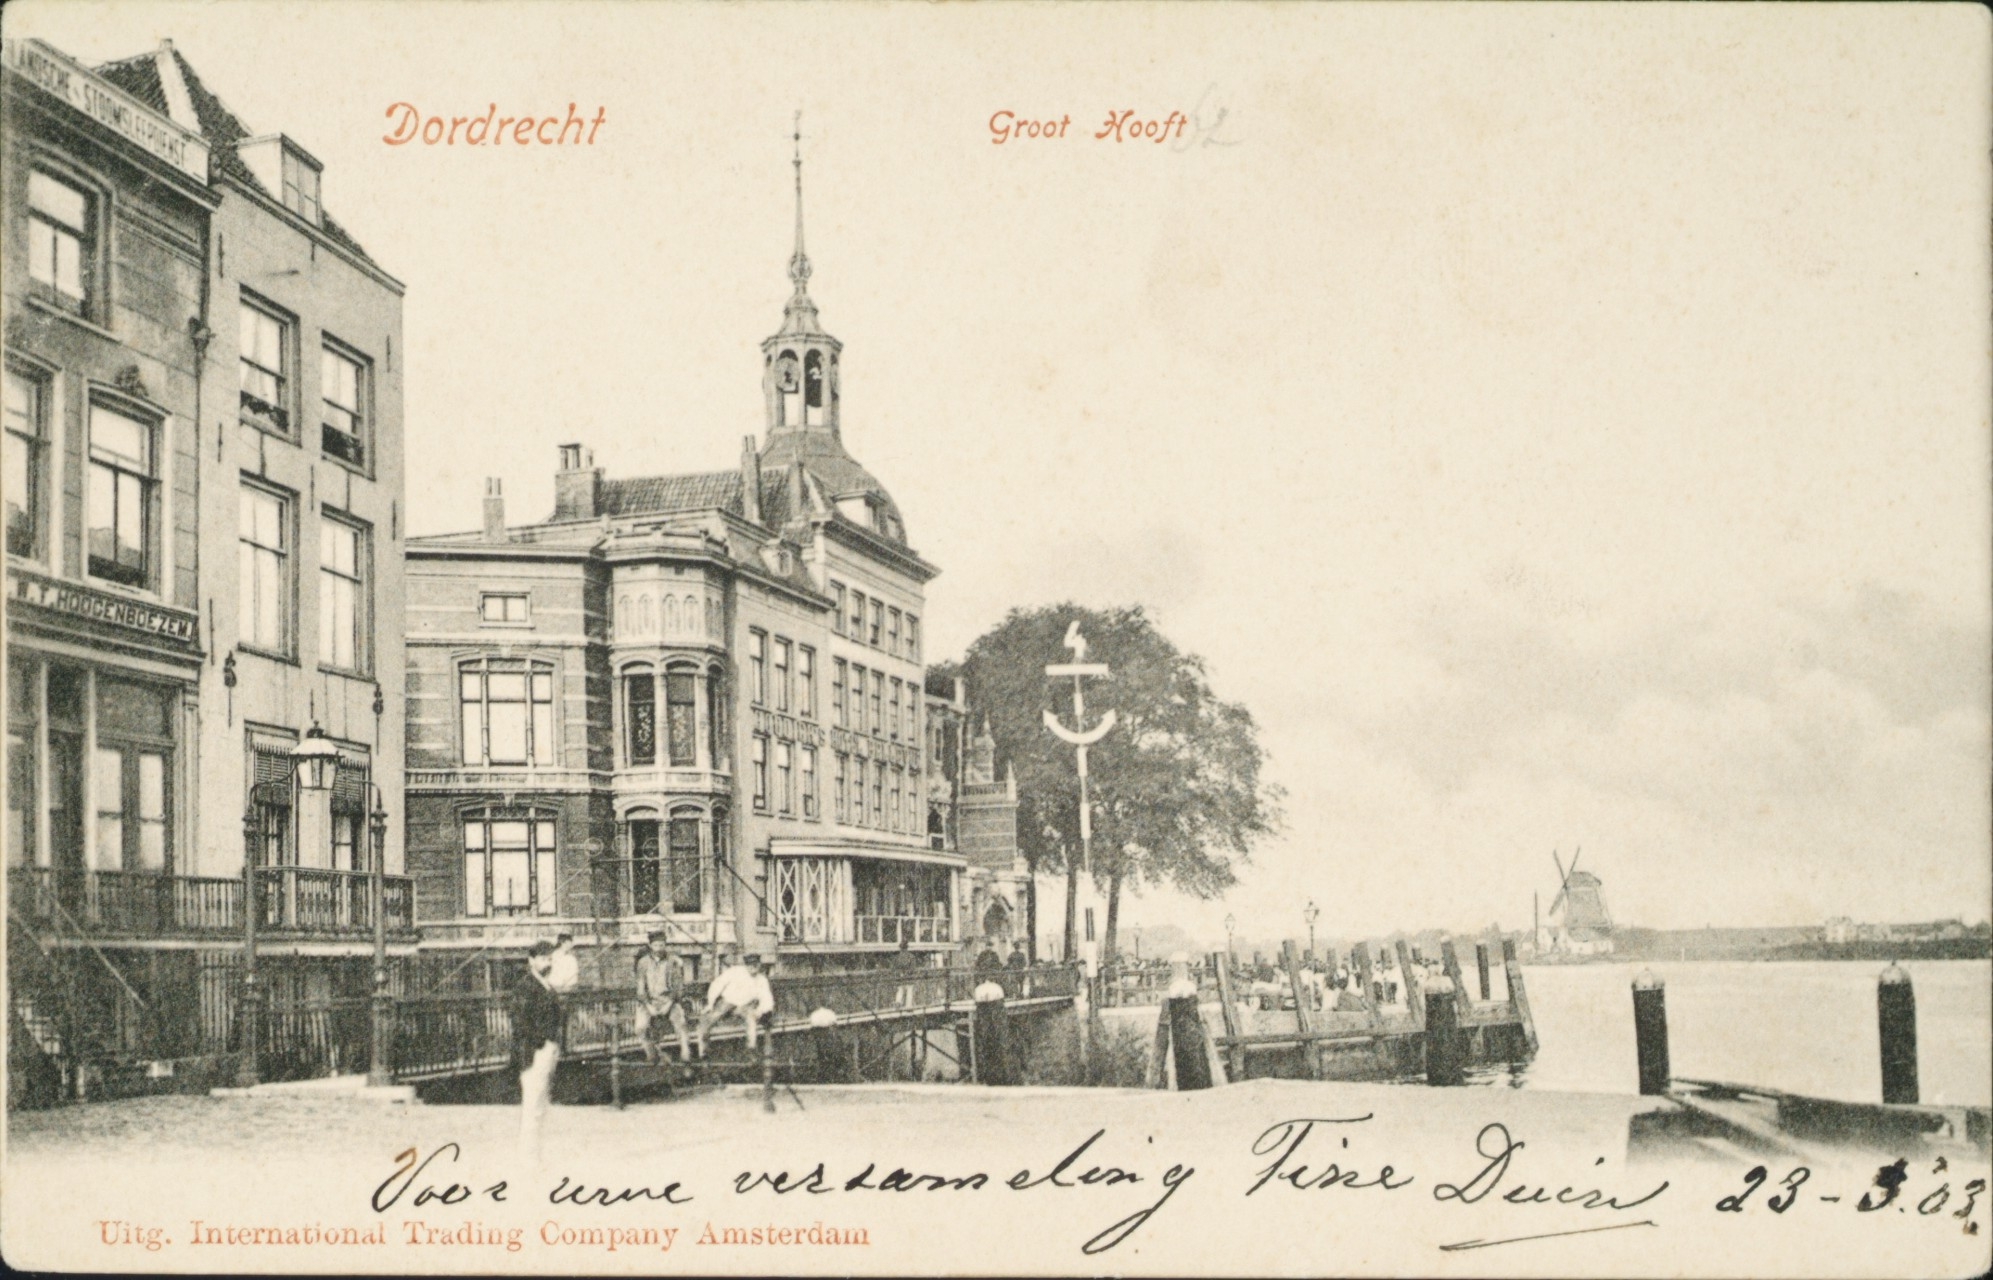 LANDSCHE STOOMSLEEPDIENST
Dordrecht
Groot Hooft
62
W.T. HOOGENBOEZEM.
4
Voor uwe verzameling Tine Duin 23-3.'03
Uitg. International Trading Company Amsterdam